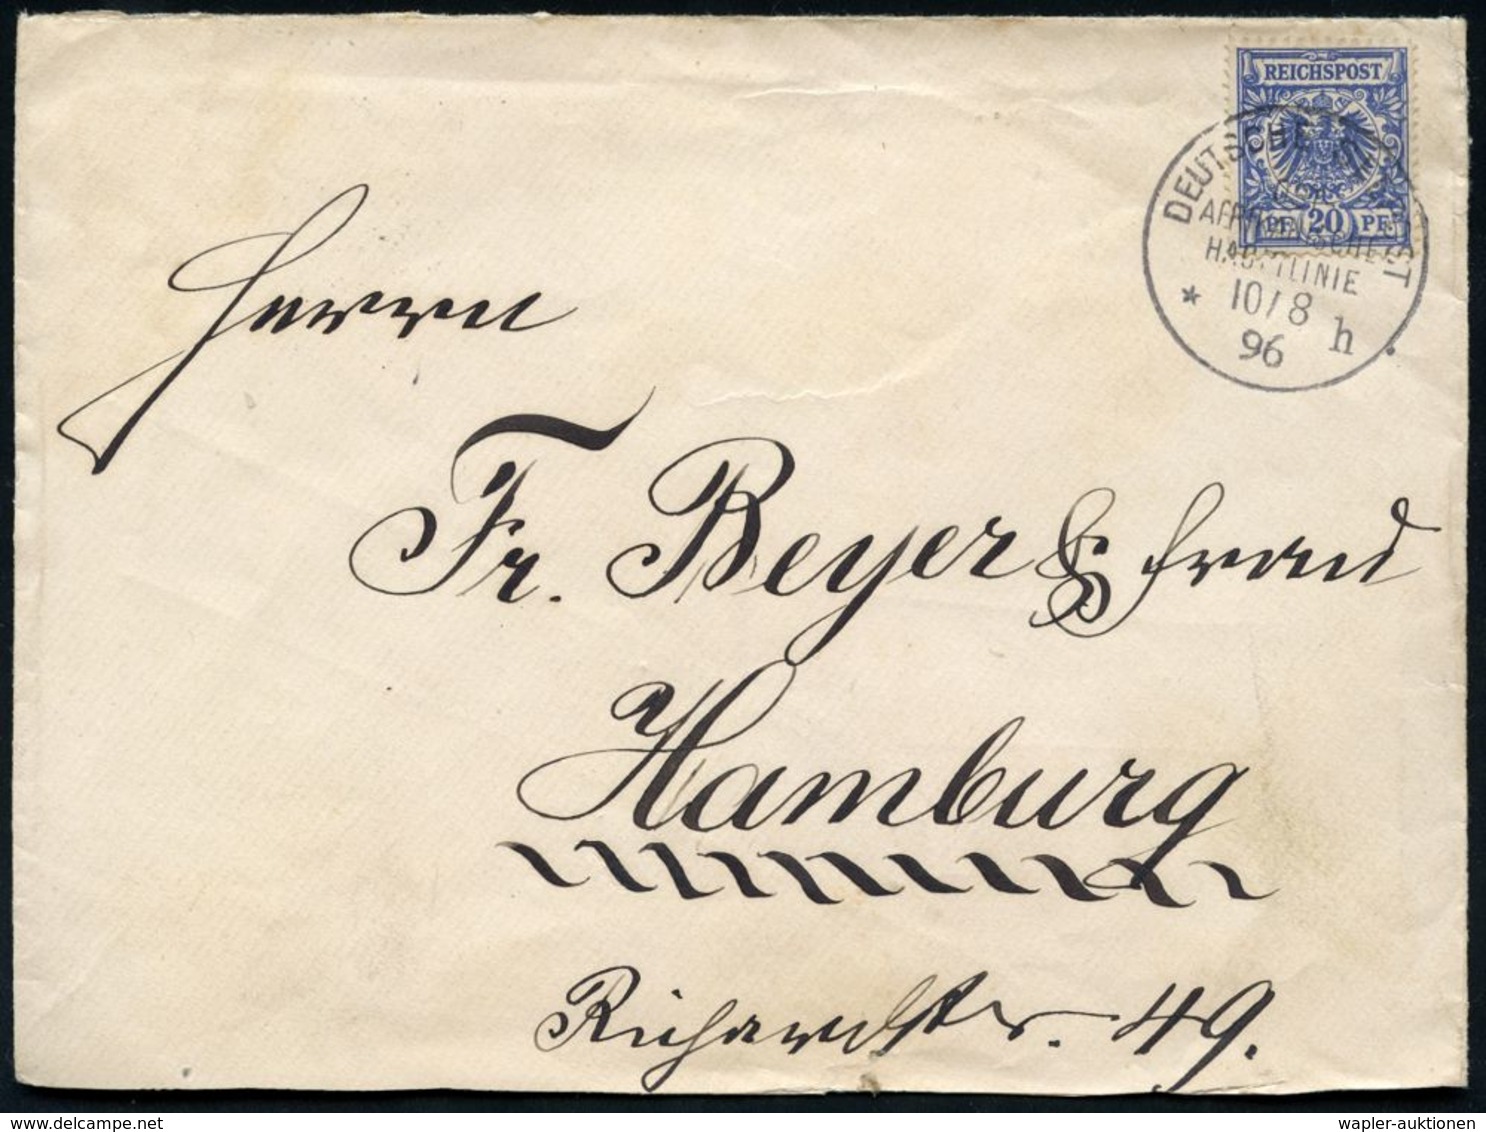 REICHSPOST
PF 20 PF
DEUTSCHE SEEPOST
AFRIKANISCHE
HAUPTLINIE
* 10/8 h.
96
Herrn
Fr. Beyer & Frau
Hamburg
Richardstr. 49.
www.delcampe.net
wapler-auktionen